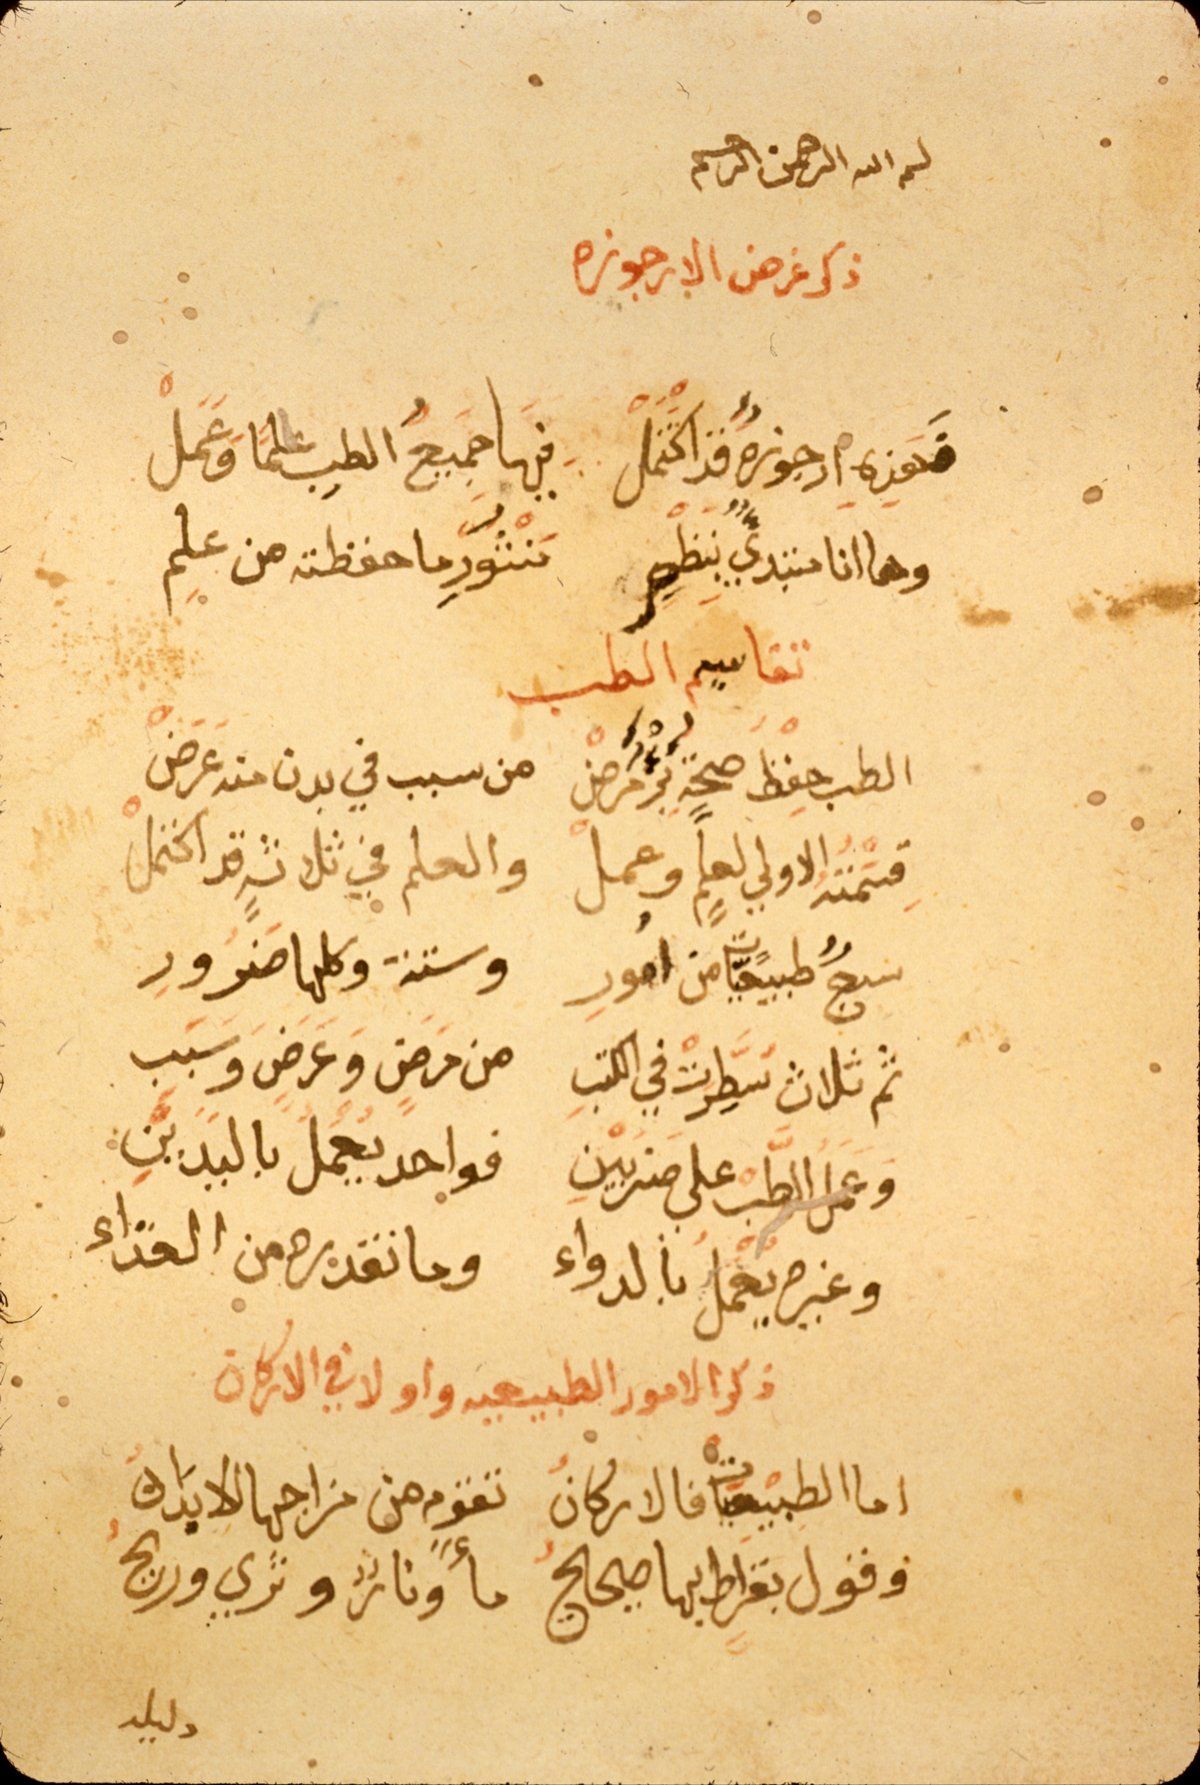 بسم الله الرحمن الرحيم
ذكر غرض الارجوزه
فهذه ارجوزةٌ قد اكتملْ فيها جَمِيعُ الطب علمًا وَعَملْ
وها انا مبتديٌ بنظْمِ مَنثورِ ما حفظته من علمِ
تقاسيم الطب
الطب حِفظُ صحةٍ برؤ مرضْ من سبب في بدن منه عَرَضْ
قِسْمتهُ الاولي لعلمٍ وعملْ والعلم في ثلاثةٍ قد اكتملْ
سبعٌ طبيعياتٌ من امُورِ وستة وكلها ضَرُورِ
ثم ثلاث سُطِرَتْ في الكتبِ من مَرَضٍ وَعَرَضٍ وَسَبَبِ
وَعَمَلُ الطبِّ علي ضَرْبَيْنِ فواحد يُعْمَلُ باليَدَيْنِ
وغيره يُعْمَلُ بالدواء وما نقدره من الغذاء
ذكر الامور الطبيعيه واولا في الاركان
اما الطبيعيات فالاركانُ تقوم من مزاجها الابدانُ
وقول بقراط بها صحيحُ ماءٌ ونارٌ وثري وريحُ
دليله